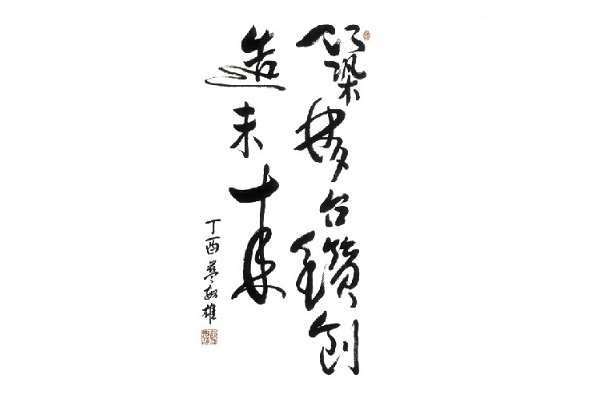 築夢台鑽創
造未來
丁酉 雄